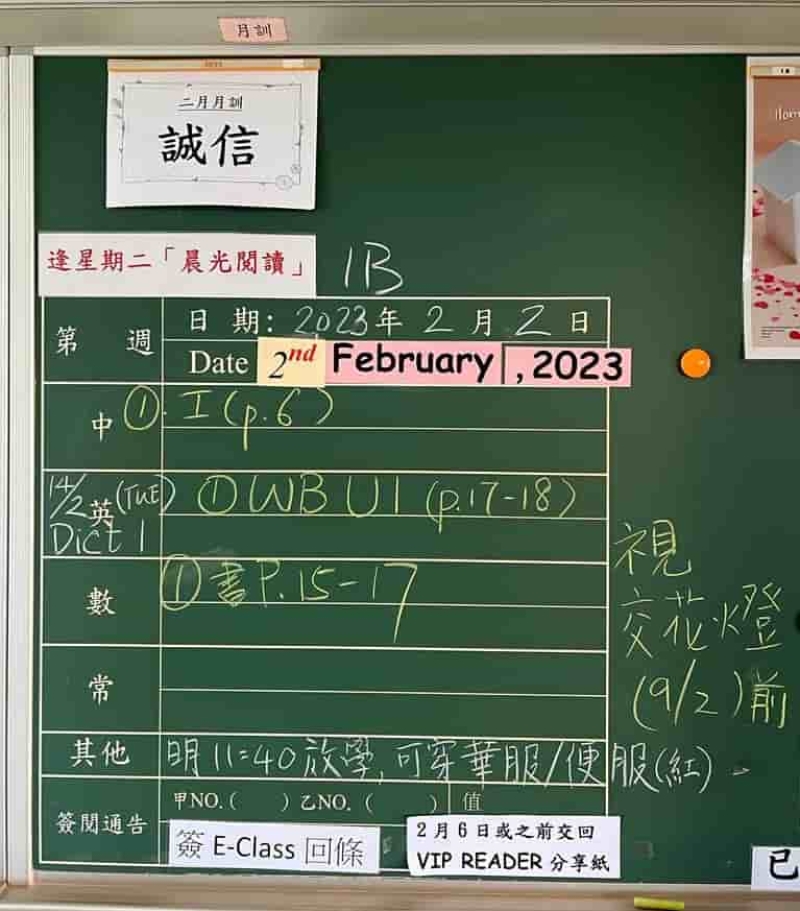 月訓
二月月訓
誠信
逢星期二「晨光閱讀」
1B
第 週
日 期: 2023年 2 月 2 日
Date 2nd February, 2023
中 ①. I (p.6)
14/2 (TUE) Dict 1
英 ① WB U1 (p.17-18)
數 ① 書P.15-17
常
視
交花燈
(9/2)前
其他 明11:40放學,可穿華服/便服(紅)。
簽閱通告 甲NO.( ) 乙NO.( ) 值
簽 E-Class 回條
2月6日或之前交回
VIP READER 分享紙
已